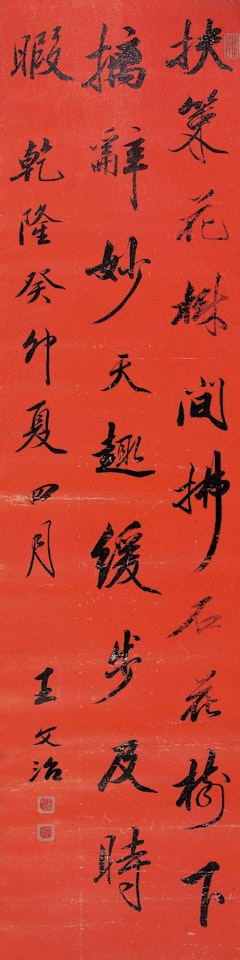 挟策花間拂石花樹下
摛辭妙天趣緩步及時
暇 乾隆癸卯夏四月
王文治